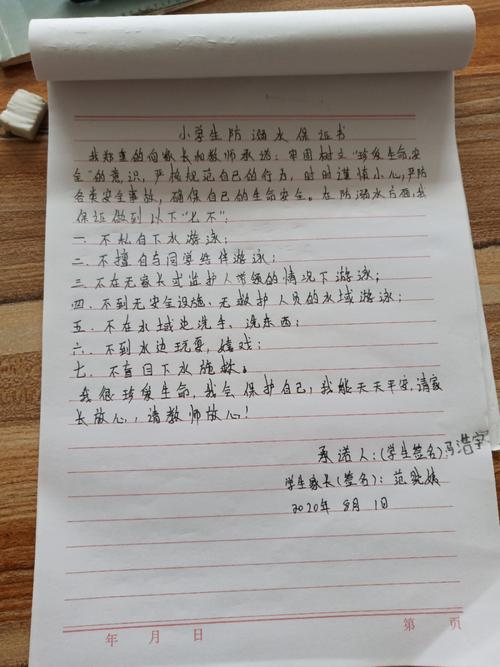 小学生防溺水保证书
我郑重的向家长和教师承诺：牢固树立“珍爱生命，安
全”的意识，严格规范自己的行为，时时谨慎小心，严防
各类安全事故，确保自己的生命安全。在防溺水方面，我
保证做到以下“七不”：
一、不私自下水游泳；
二、不擅自与同学结伴游泳；
三、不在无家长或监护人带领的情况下游泳；
四、不到无安全设施、无救护人员的水域游泳；
五、不在水域边洗手、洗东西；
六、不到水边玩耍、嬉戏；
七、不盲目下水施救。
我很珍爱生命，我会保护自己，我能天天平安，请家
长放心，请教师放心！
承诺人：(学生签名)冯浩宇
学生家长(签名)：范
2020年8月1日
年 月 日 第 页